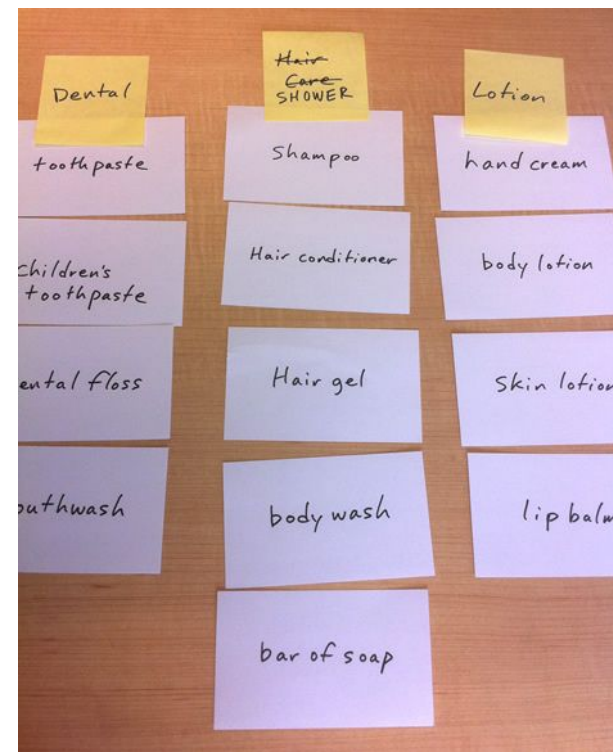 Dental
toothpaste
children's
toothpaste
ental floss
outhwash
Hair
Care
SHOWER
Shampoo
Hair conditioner
Hair gel
body wash
bar of soap
Lotion
hand cream
body lotion
Skin lotion
lip balm